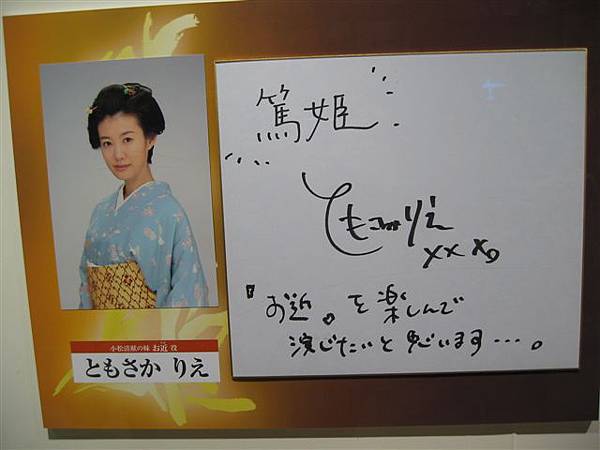 篤姫
ともさかりえ
xx x
『お近』を楽しんで
演じたいと思います…。
小松清猷の妹 お近 役
ともさか りえ